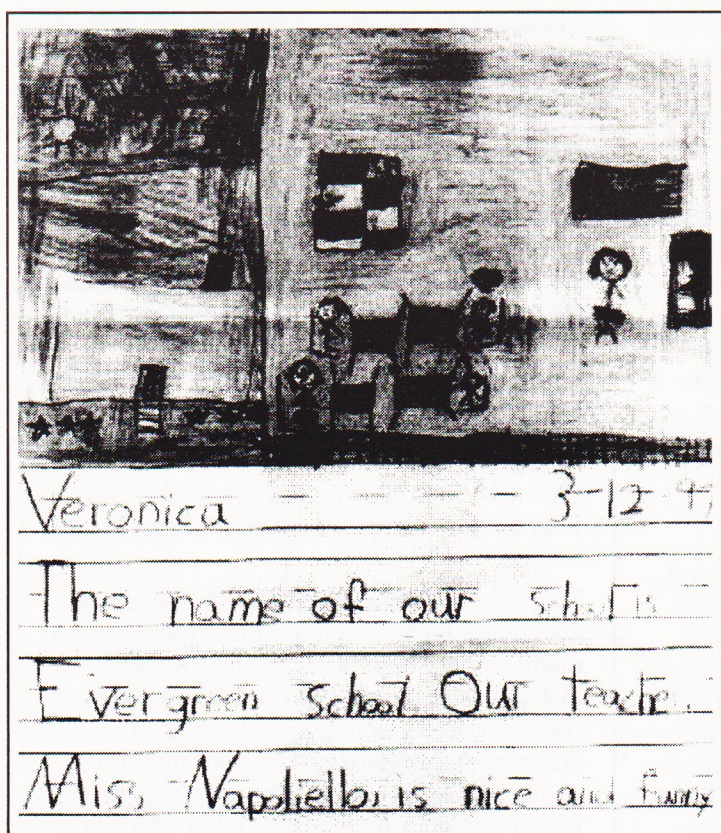 Veronica 3-12
The name of our school is
Evergreen School. Our teacher
Miss Napoliello is nice and funny